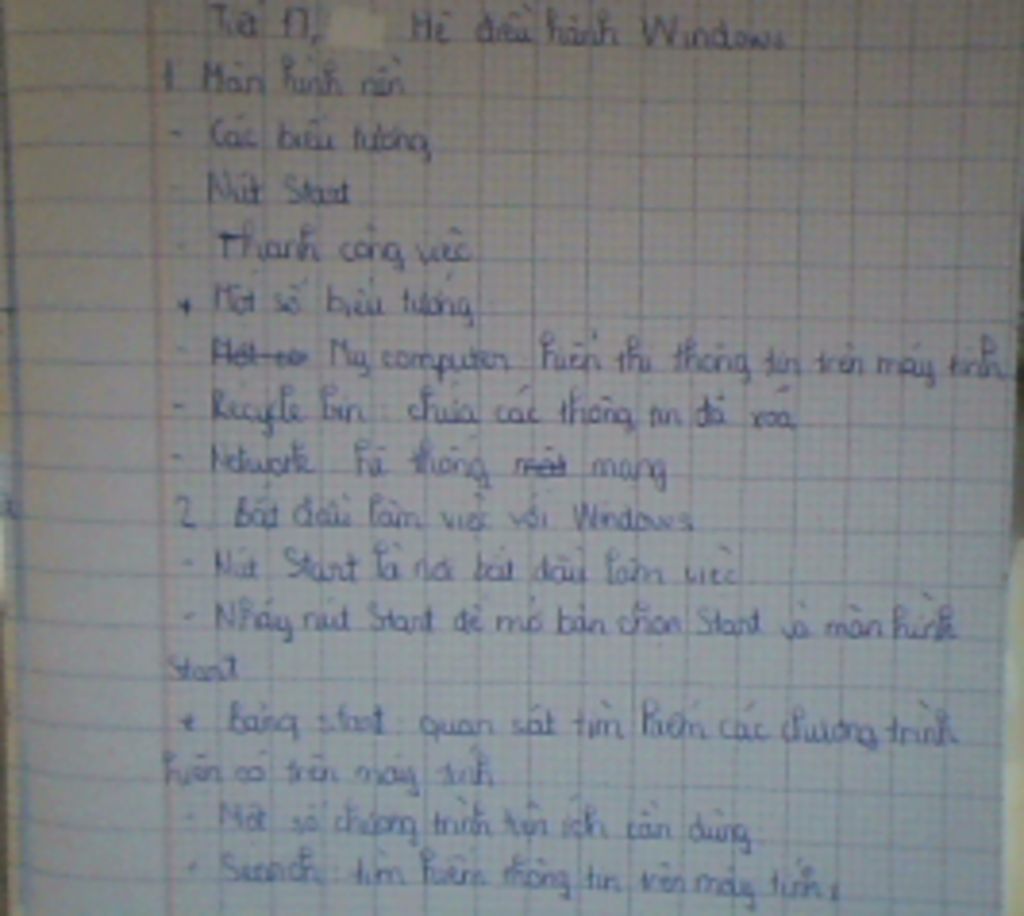 Tiết 17, Hệ điều hành Windows
1 Màn hình nền
- Các biểu tượng
- Nút Start
- Thanh công việc
+ Một số biểu tượng
- My computer hiển thị thông tin trên máy tính
- Recycle bin: chứa các thông tin đã xoá
- Network hệ thống mạng
2 Bắt đầu làm việc với Windows
- Nút Start là nơi bắt đầu làm việc
- Nháy nút Start để mở bản chọn Start và màn hình
Start
+ Bảng start: quan sát tìm hiểm các chương trình
hiện có trên máy tính
- Một số chương trình tiện ích cần dùng
- Search: tìm hiểm thông tin trên máy tính